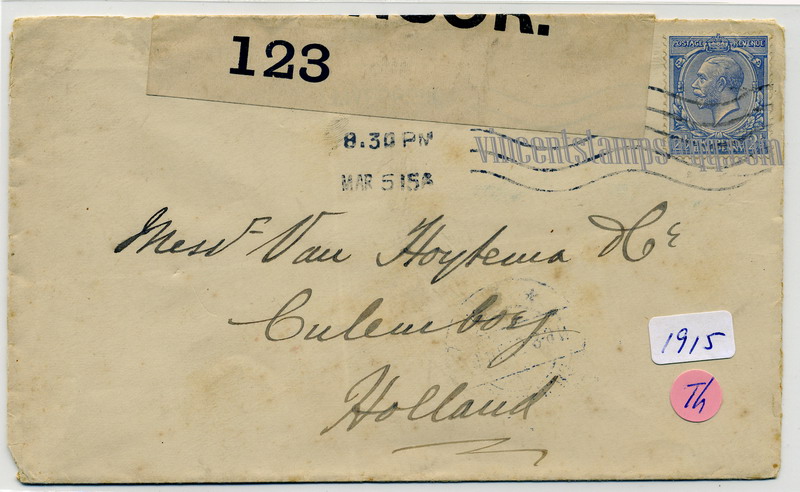 123
POSTAGE REVENUE
8.30 PM
MAR 5 15
vincentstamps@qq.com
Messrs Van Hoytema & Co
Culemborg
Holland
1915
Th